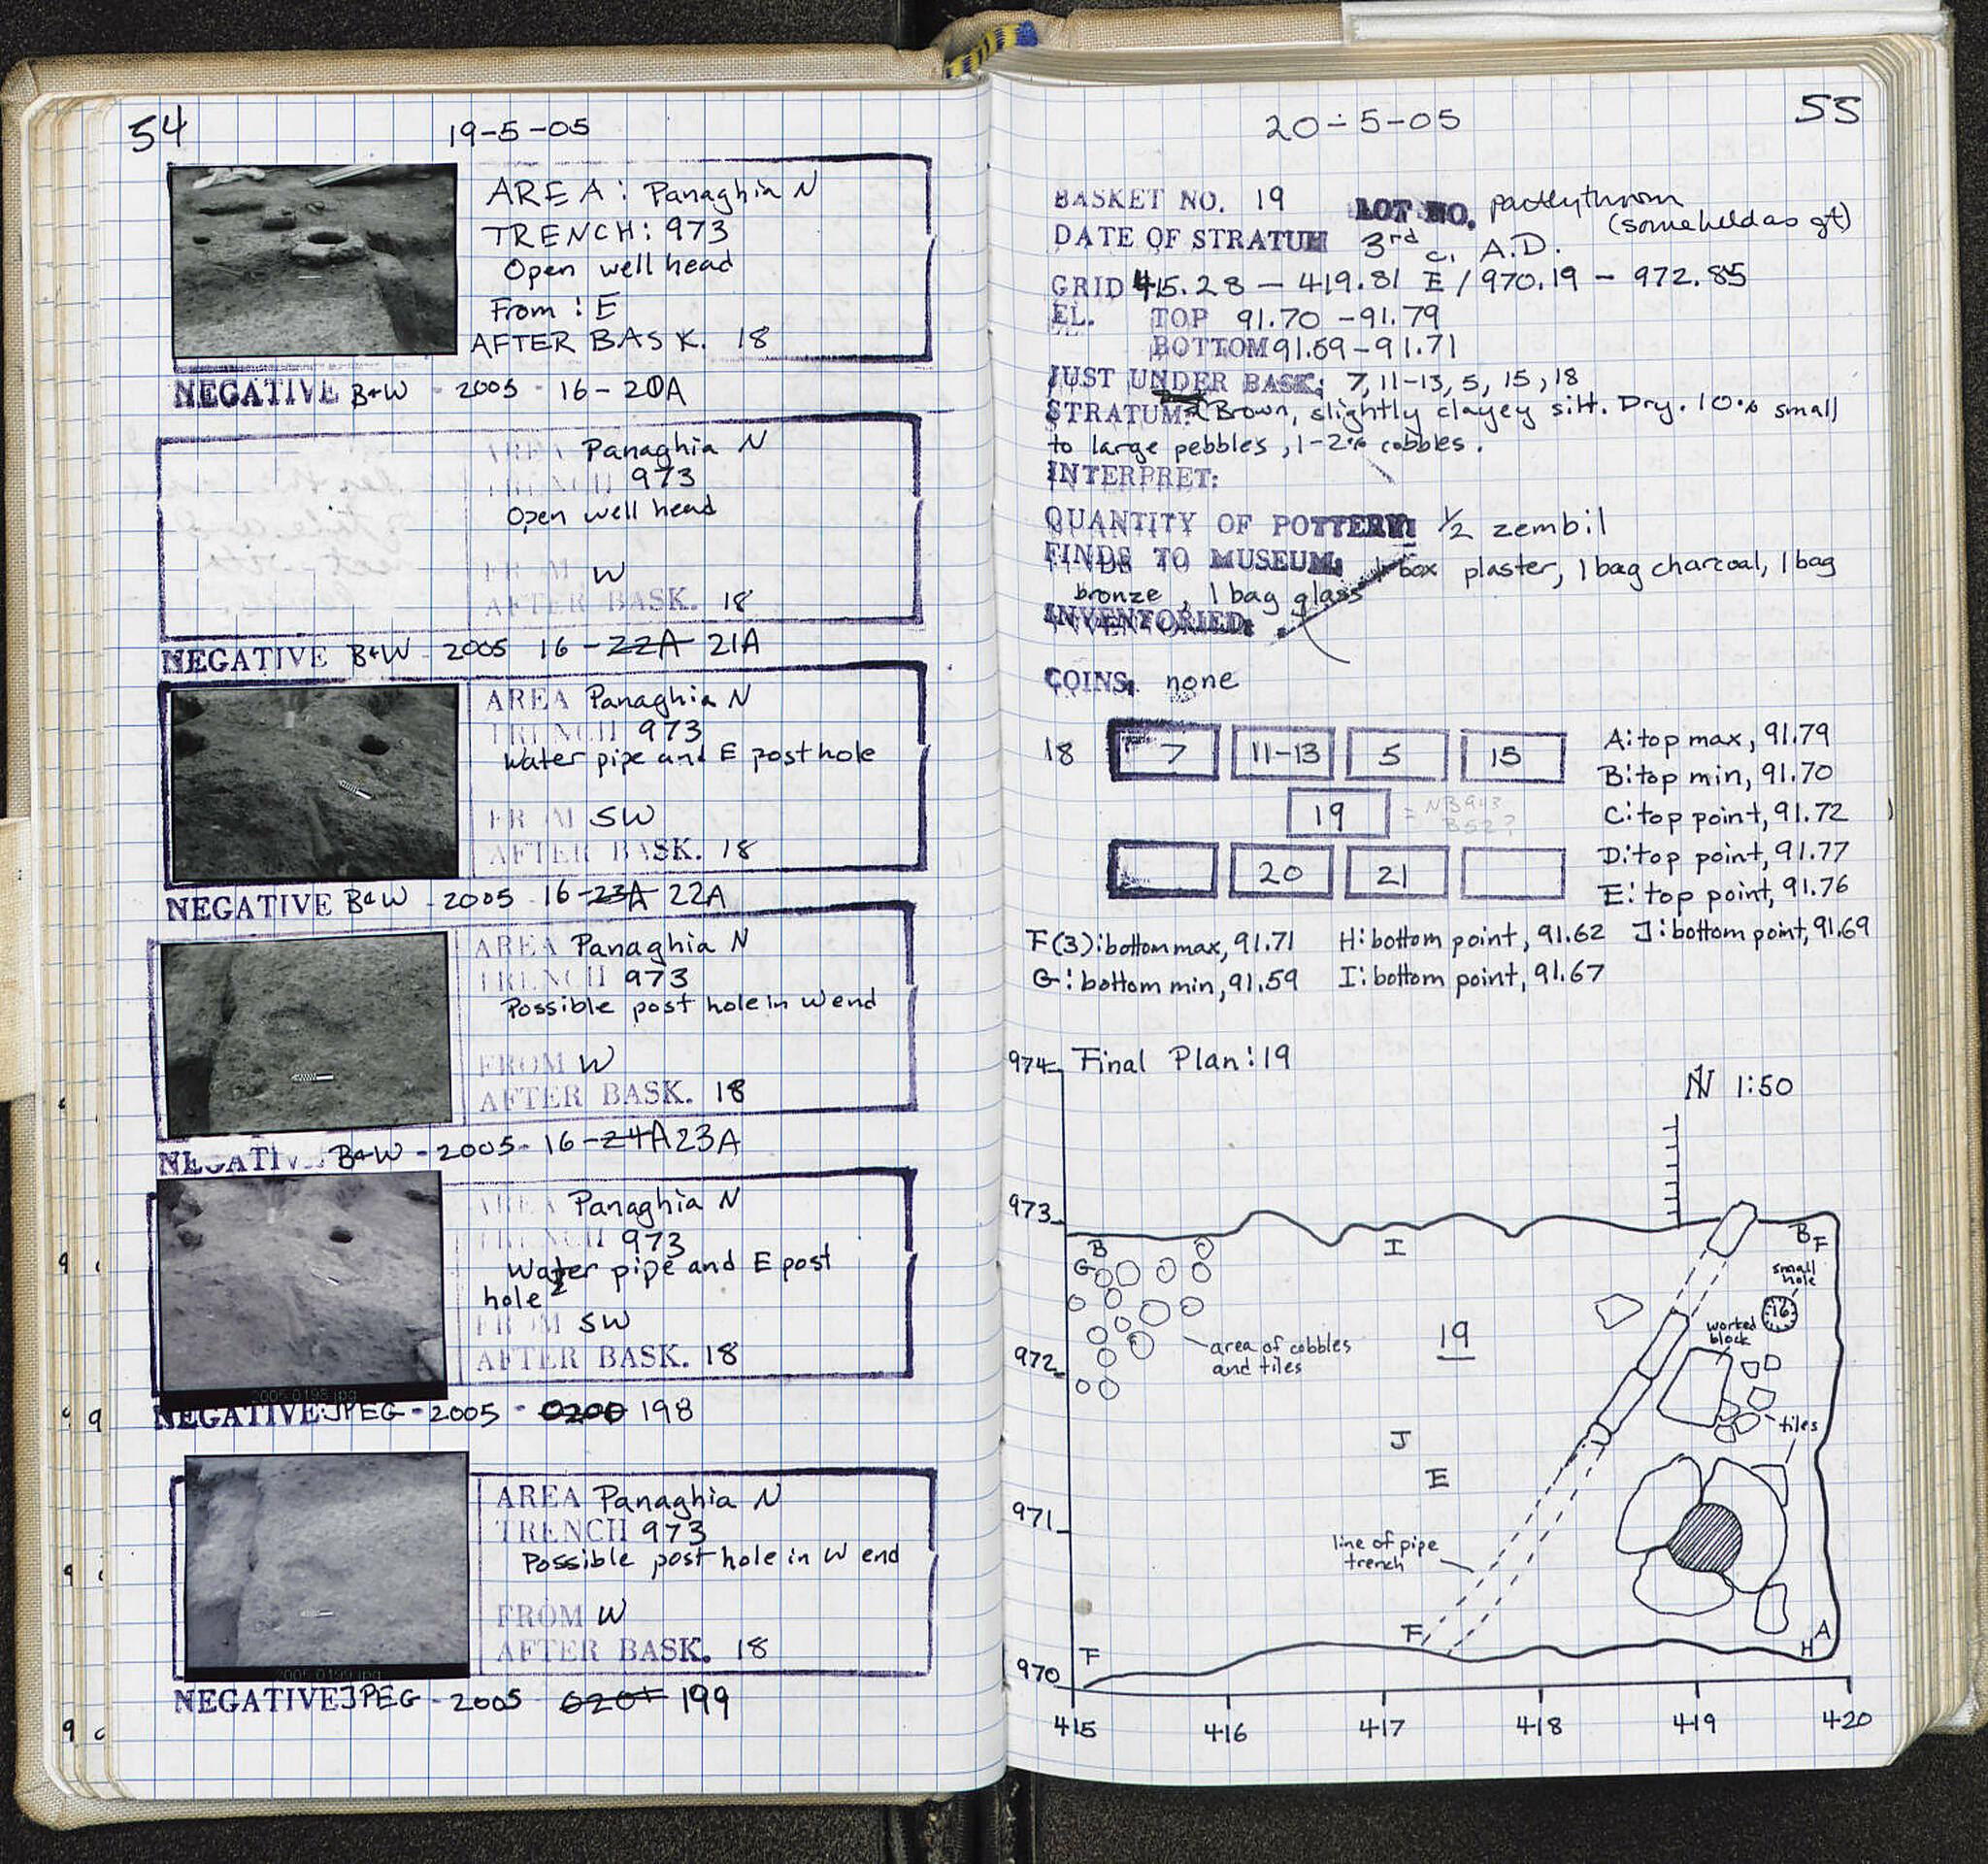 54
19-5-05
AREA: Panaghia N
TRENCH: 973
Open well head
From: E
AFTER BASK. 18
NEGATIVE B+W - 2005 - 16-20A
AREA Panaghia N
TRENCH 973
Open well head
FROM W
AFTER BASK. 18
NEGATIVE B+W - 2005 16-22A 21A
AREA Panaghia N
TRENCH 973
Water pipe and E post hole
FROM SW
AFTER BASK. 18
NEGATIVE B+W - 2005 16-23A 22A
AREA Panaghia N
TRENCH 973
Possible post hole in W end
FROM W
AFTER BASK. 18
NEGATIVE B+W - 2005 - 16-24A 23A
AREA Panaghia N
TRENCH 973
Water pipe and E post
hole
FROM SW
AFTER BASK. 18
2005 0198.jpg
NEGATIVE: JPEG - 2005 - 0200 198
AREA Panaghia N
TRENCH 973
Possible post hole in W end
FROM W
AFTER BASK. 18
2005 0199.jpg
NEGATIVE JPEG - 2005 - 0201 199
55
20-5-05
BASKET NO. 19 LOT NO. partly thrown
(some held as gt)
DATE OF STRATUM 3rd c. A.D.
GRID 415.28 - 419.81 E / 970.19 - 972.85
EL. TOP 91.70 - 91.79
BOTTOM 91.59 - 91.71
JUST UNDER BASK: 7, 11-13, 5, 15, 18
STRATUM: Brown, slightly clayey silt. Dry. 10% small
to large pebbles, 1-2% cobbles.
INTERPRET:
QUANTITY OF POTTERY: 1/2 zembil
FINDS TO MUSEUM: 1 box plaster, 1 bag charcoal, 1 bag
bronze, 1 bag glass
INVENTORIED:
COINS: none
18 7 11-13 5 15
19 = NB943
B52?
20 21
A: top max, 91.79
B: top min, 91.70
C: top point, 91.72
D: top point, 91.77
E: top point, 91.76
F(3): bottom max, 91.71 H: bottom point, 91.62 J: bottom point, 91.69
G: bottom min, 91.59 I: bottom point, 91.67
974 Final Plan: 19
N 1:50
973
B
G
I
B F
small
hole
16
worked
block
19
area of cobbles
and tiles
972
tiles
J
E
971
line of pipe
trench
F
F
A
H
970
415 416 417 418 419 420